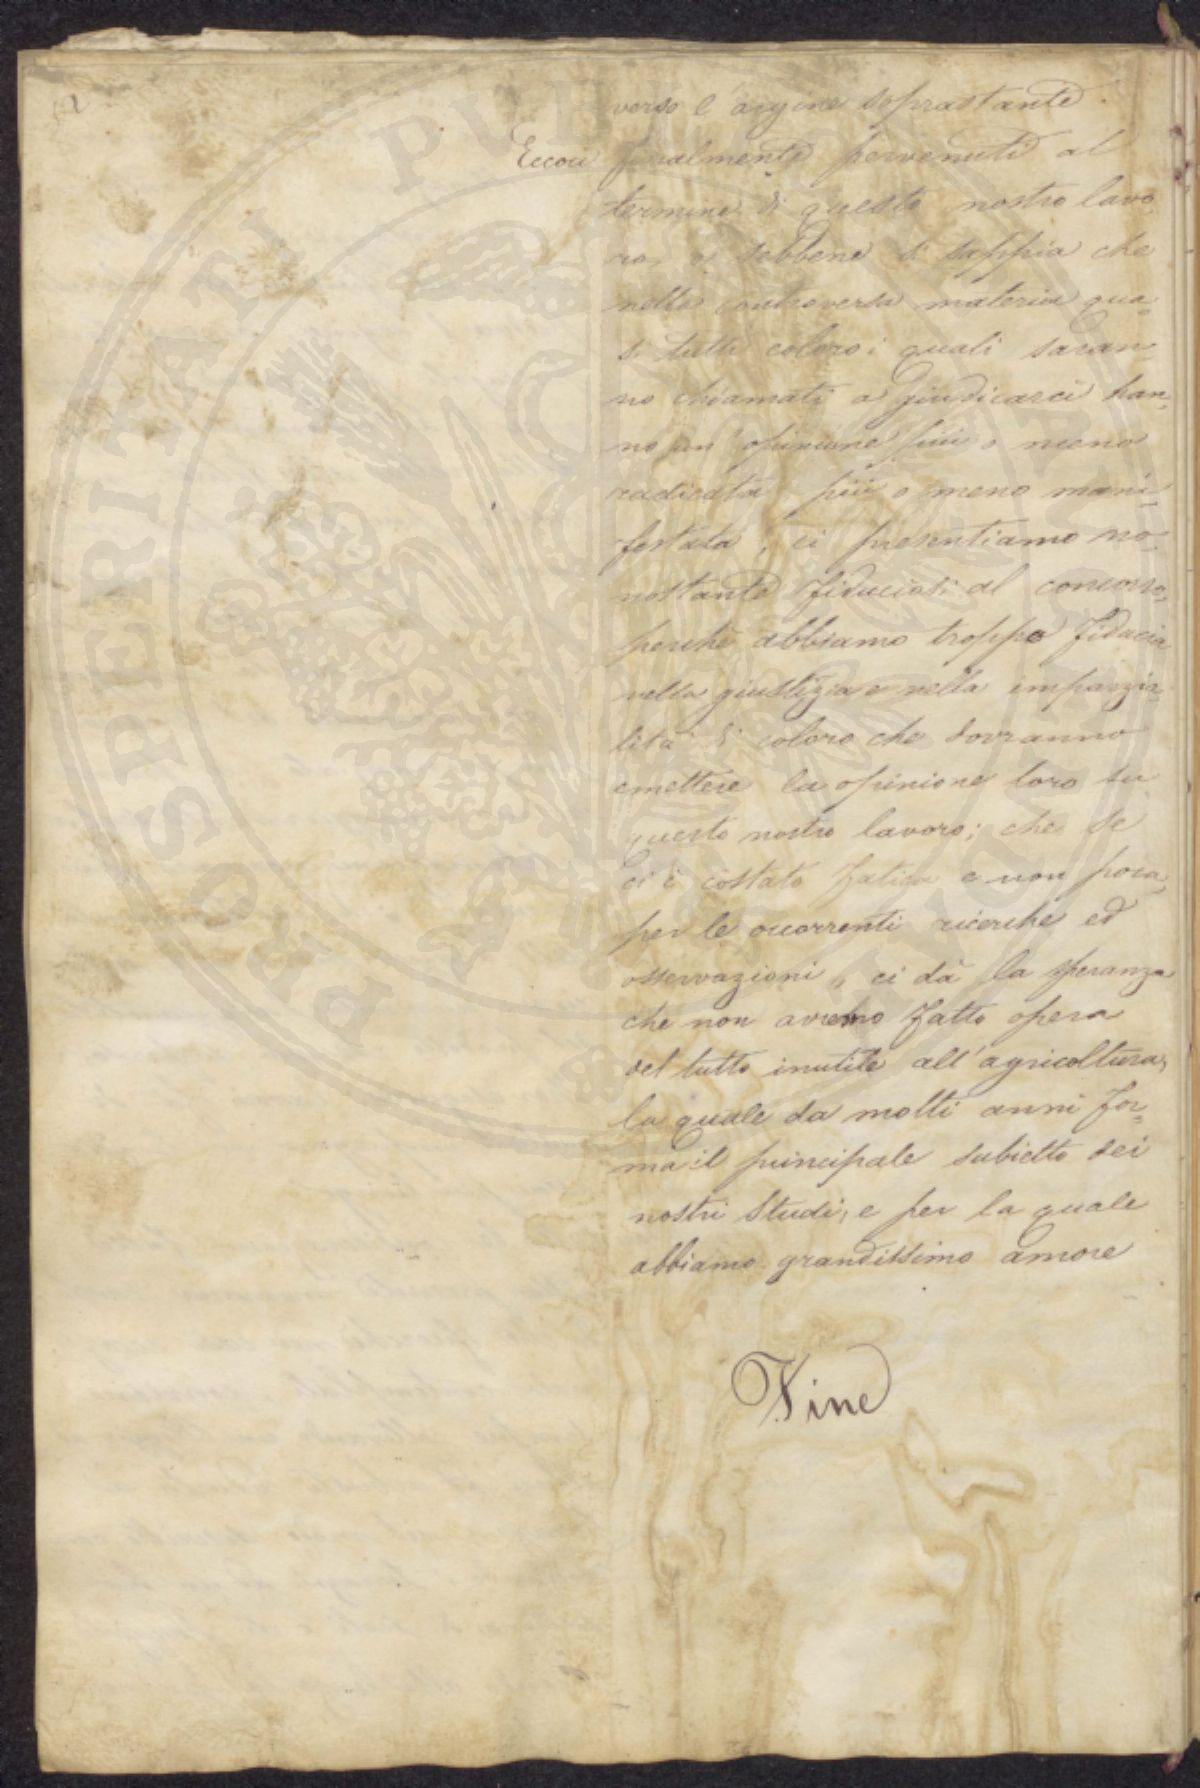 verso l'argine soprastante.
Eccoci finalmente pervenuti al
termine di questo nostro lavo
ro, e sebbene si sappia che
nella controversa materia qua=
si tutti coloro i quali saran=
no chiamati a giudicarci han=
no un'opinione più o meno
radicata più o meno mani=
festata, ci presentiamo no=
nostante fiduciosi al concorso,
perchè abbiamo troppa fiducia
nella giustizia e nella imparzia=
lità di coloro che dovranno
emettere la opinione loro su
questo nostro lavoro; che se
ci è costato fatica e non poca,
per le occorrenti ricerche ed
osservazioni, ci dà la speranza
che non avremo fatto opera
del tutto inutile all'agricoltura,
la quale da molti anni for=
ma il principale subietto dei
nostri Studi, e per la quale
abbiamo grandissimo amore
Fine
PROSPERITATI PUBLICAE